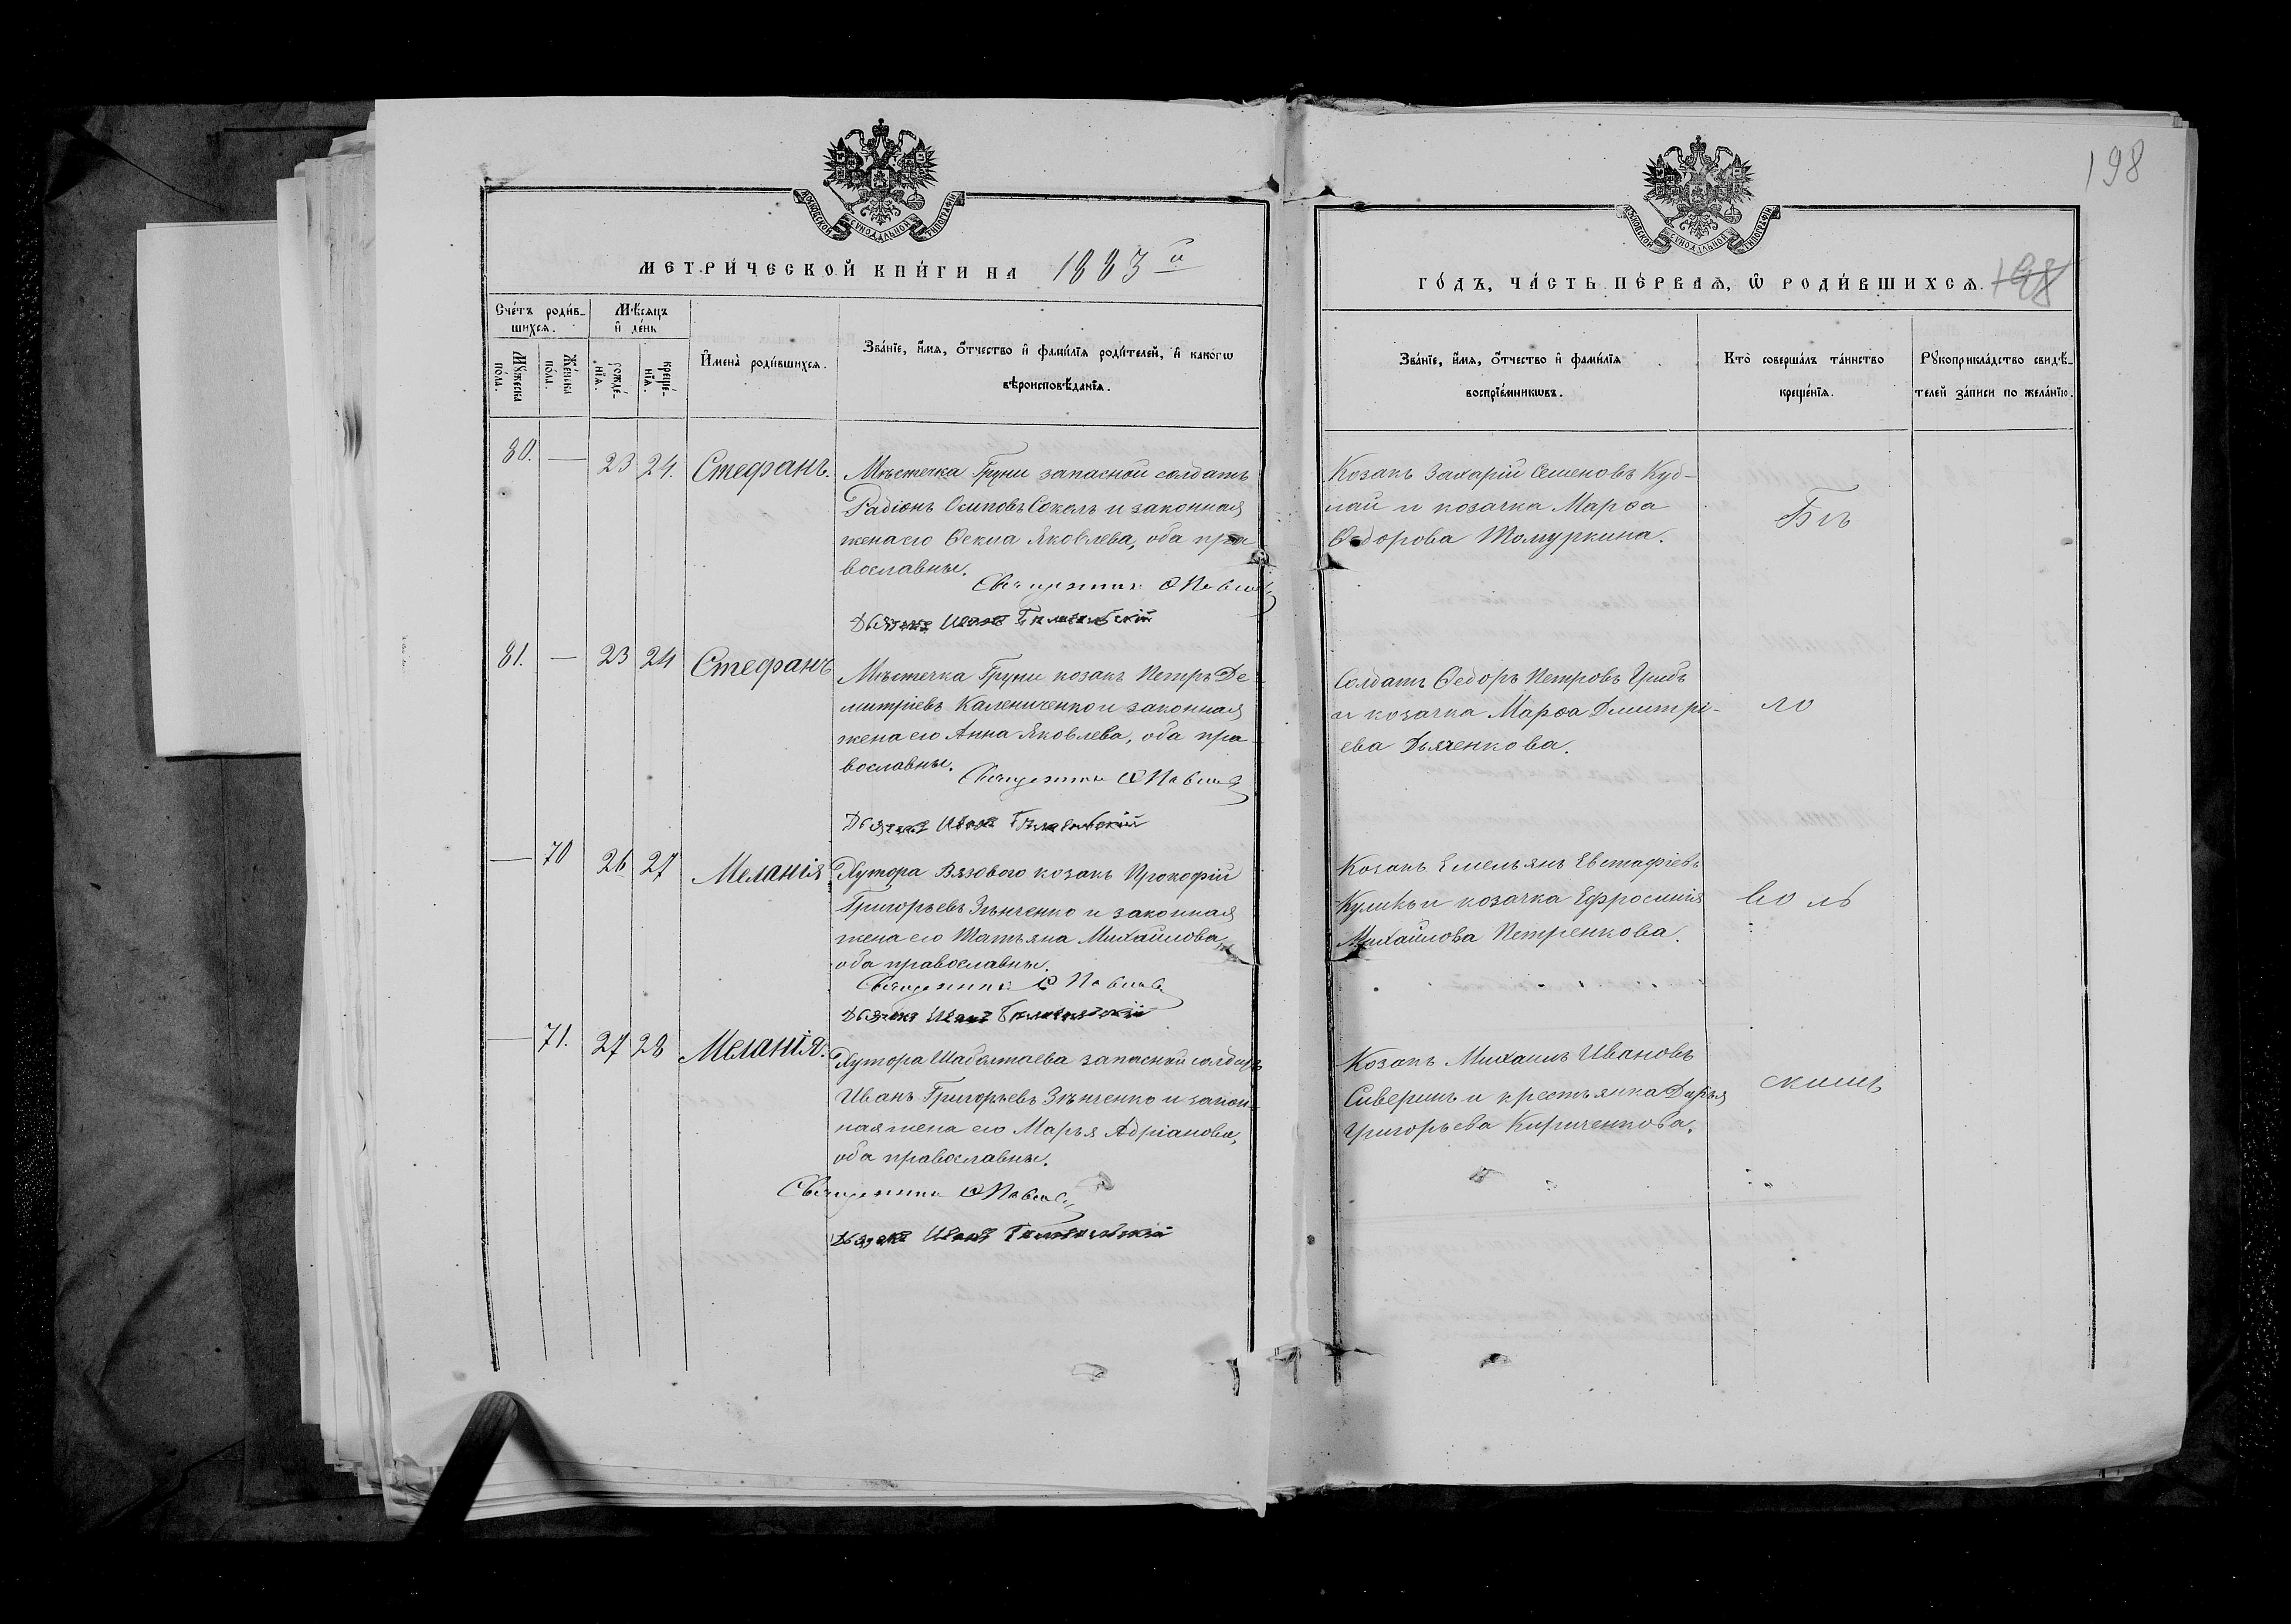 198
МОСКОВСКОЙ СѴНОДАЛЬНОЙ ТИПОГРАФІИ
МОСКОВСКОЙ СѴНОДАЛЬНОЙ ТИПОГРАФІИ
МЕТРИ́ЧЕСКОЙ КНИ́ГИ НА 1883 й
ГО́ДЪ, ЧА́СТЬ ПЕ́РВАѦ, Ѡ РОДИ́ВШИХСѦ. 198
Сче́тъ роди́в-
шихся.
Мѣ́сяцъ
и҆ де́нь
Мꙋ́жеска по́ла.
Же́нска по́ла.
рожде́-нїѧ.
креще́-нїѧ.
И҆мена̀ роди́вшихся.
Зва́нїе, и҆́мѧ, ѻ҆́тчество и҆ фами́лїѧ роди́телей, и҆ како́гѡ
вѣроисповѣ́данїѧ.
Зва́нїе, и҆́мѧ, ѻ҆́тчество и҆ фами́лїѧ
воспрїе́мникѡвъ.
Кто̀ соверша́лъ та́инство
креще́нїѧ.
Рꙋкоприкла́дство свидѣ́-
телей за́писи по жела́нїю.
80. — 23 24. Стефанъ.
Мѣстечка Груни запасной солдатъ
Радіонъ Осиповъ Соколъ и законная
жена его Ѳекла Яковлева, оба пра
вославные.
Священникъ
Дьячекъ Иванъ
Козакъ Захарій Семеновъ Куб-
лай и козачка Марѳа
Ѳедорова Томуркина.
Бѣ
81. — 23 24 Стефанъ
Мѣстечка Груни козакъ Петръ Де-
митріевъ Калениченко и законная
жена его Анна Яковлева, оба пра-
вославные.
Священникъ
Дьячекъ Иванъ
Солдатъ Ѳедоръ Петровъ Грибъ
и козачка Марѳа Дмитрі-
ева Дьяченкова.
ло
— 70 26 27 Меланія
Хутора Вязового козакъ Прокофій
Григорьевъ Зѣнченко и законная
жена его Татьяна Михайлова,
оба православные.
Священникъ
Дьячекъ Иванъ
Козакъ Емельянъ Евстафіевъ
Куликъ и козачка Ефросинія
Михайлова Петренкова.
воль
— 71. 27 28 Меланія.
Хутора Шабалтаева запасной солдатъ
Иванъ Григорьевъ Зѣнченко и закон-
ная жена его Марья Адріанова,
оба православные.
Священникъ
Дьячекъ Иванъ
Козакъ Михаилъ Ивановъ
Сиверинъ и крестьянка Дарья
Григорьева Кириченкова.
скимъ